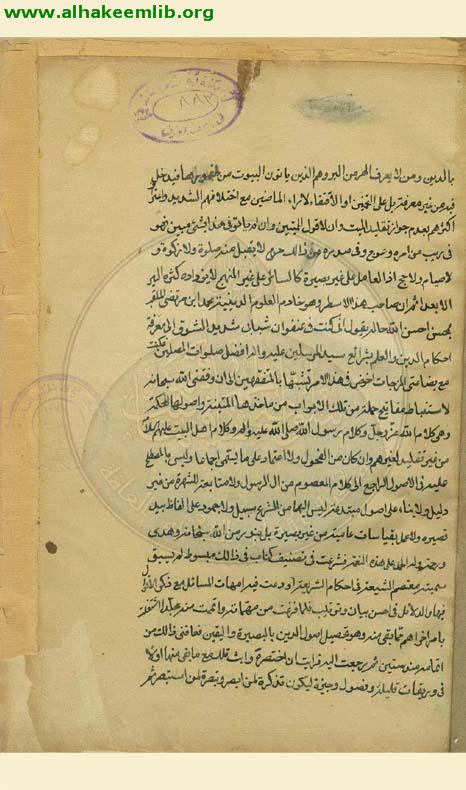 www.alhakeemlib.org
٨٨٢
بالدين ومن لا يعرف الهر من البر وهم الذين ياتون البيوت من ظهورها فيدخل
فيه من غير معرفة بل على التخمين او الاقتفاء لاراء الماضين مع اختلافهم الشديد واعتراف
اكثرهم بعدم جواز تقليد الميت وان لا قول للميتين وان لم ياتوا في هذا بشئ مبين فهو
في ريب من امره وحرج في صدره ومن ذلك حاله لا يقبل منه صلوة ولا زكوة و
لا صيام ولا حج اذ العامل على غير بصيرة كالسائر على غير المنهج لا يزداده كثرة السير
الا بعدا ثم ان صاحب هذه الاسطر وهو خادم العلوم الدينية محمد ابن مرتضى الملقب
بمحسن احسن الله حاله يقول اني كنت في عنفوان شبابي شديد الشوق الى معرفة
احكام الدين والعلم بشرائع سيد المرسلين عليه واله افضل صلوات المصلين فكنت
مع بضاعتي المزجاة اخوض في هذا الامر تشبها بالمتفقهين الى ان وفقني الله سبحانه
لاستنباط مفاتيح جملة من تلك الابواب من ماخذها المتينة واصولها المحكمة
وهو كلام الله عز وجل وكلام رسول الله صلى الله عليه واله وكلام اهل البيت عليهم السلام
من غير تقليد لغيرهم وان كان من الفحول ولا اعتماد على ما يسمى اجماعا وليس بالمصطلح
عليه في الاصول الراجع الى كلام المعصوم من ال الرسول ولا متابعة الشهرة من غير
دليل ولا بناء على اصول مبتدعة ليس اليها من الشرع سبيل ولا جمود على الفاظ بيل
قصيرة ولا عمل بقياسات عامية من غير بصيرة بل بنور من الله سبحانه وهدى
ورحمة وله الحمد على هذه النعمة فشرعت في تصنيف كتاب في ذلك مبسوط لم يسبق
سميته بمعتصم الشيعة في احكام الشريعة اودعت فيه امهات المسائل مع ذكر الاقوال
فيها والدلائل في احسن بيان وترتيب فلما فرغت من مهماته واتممت منه مجلدا اشتغلت
بامر اخر اهم مما بقي منه وهو تحصيل اصول الدين بالبصيرة واليقين فعاقني ذلك من
اتمامه منذ سنين ثم رجعت اليه فرايت ان اختصره واثبت تلك مع ما بقي منها اولا
في وريقات قليلة وفصول وجيزة ليكون تذكرة لمن ابصر وتبصرة لمن استبصر ثم